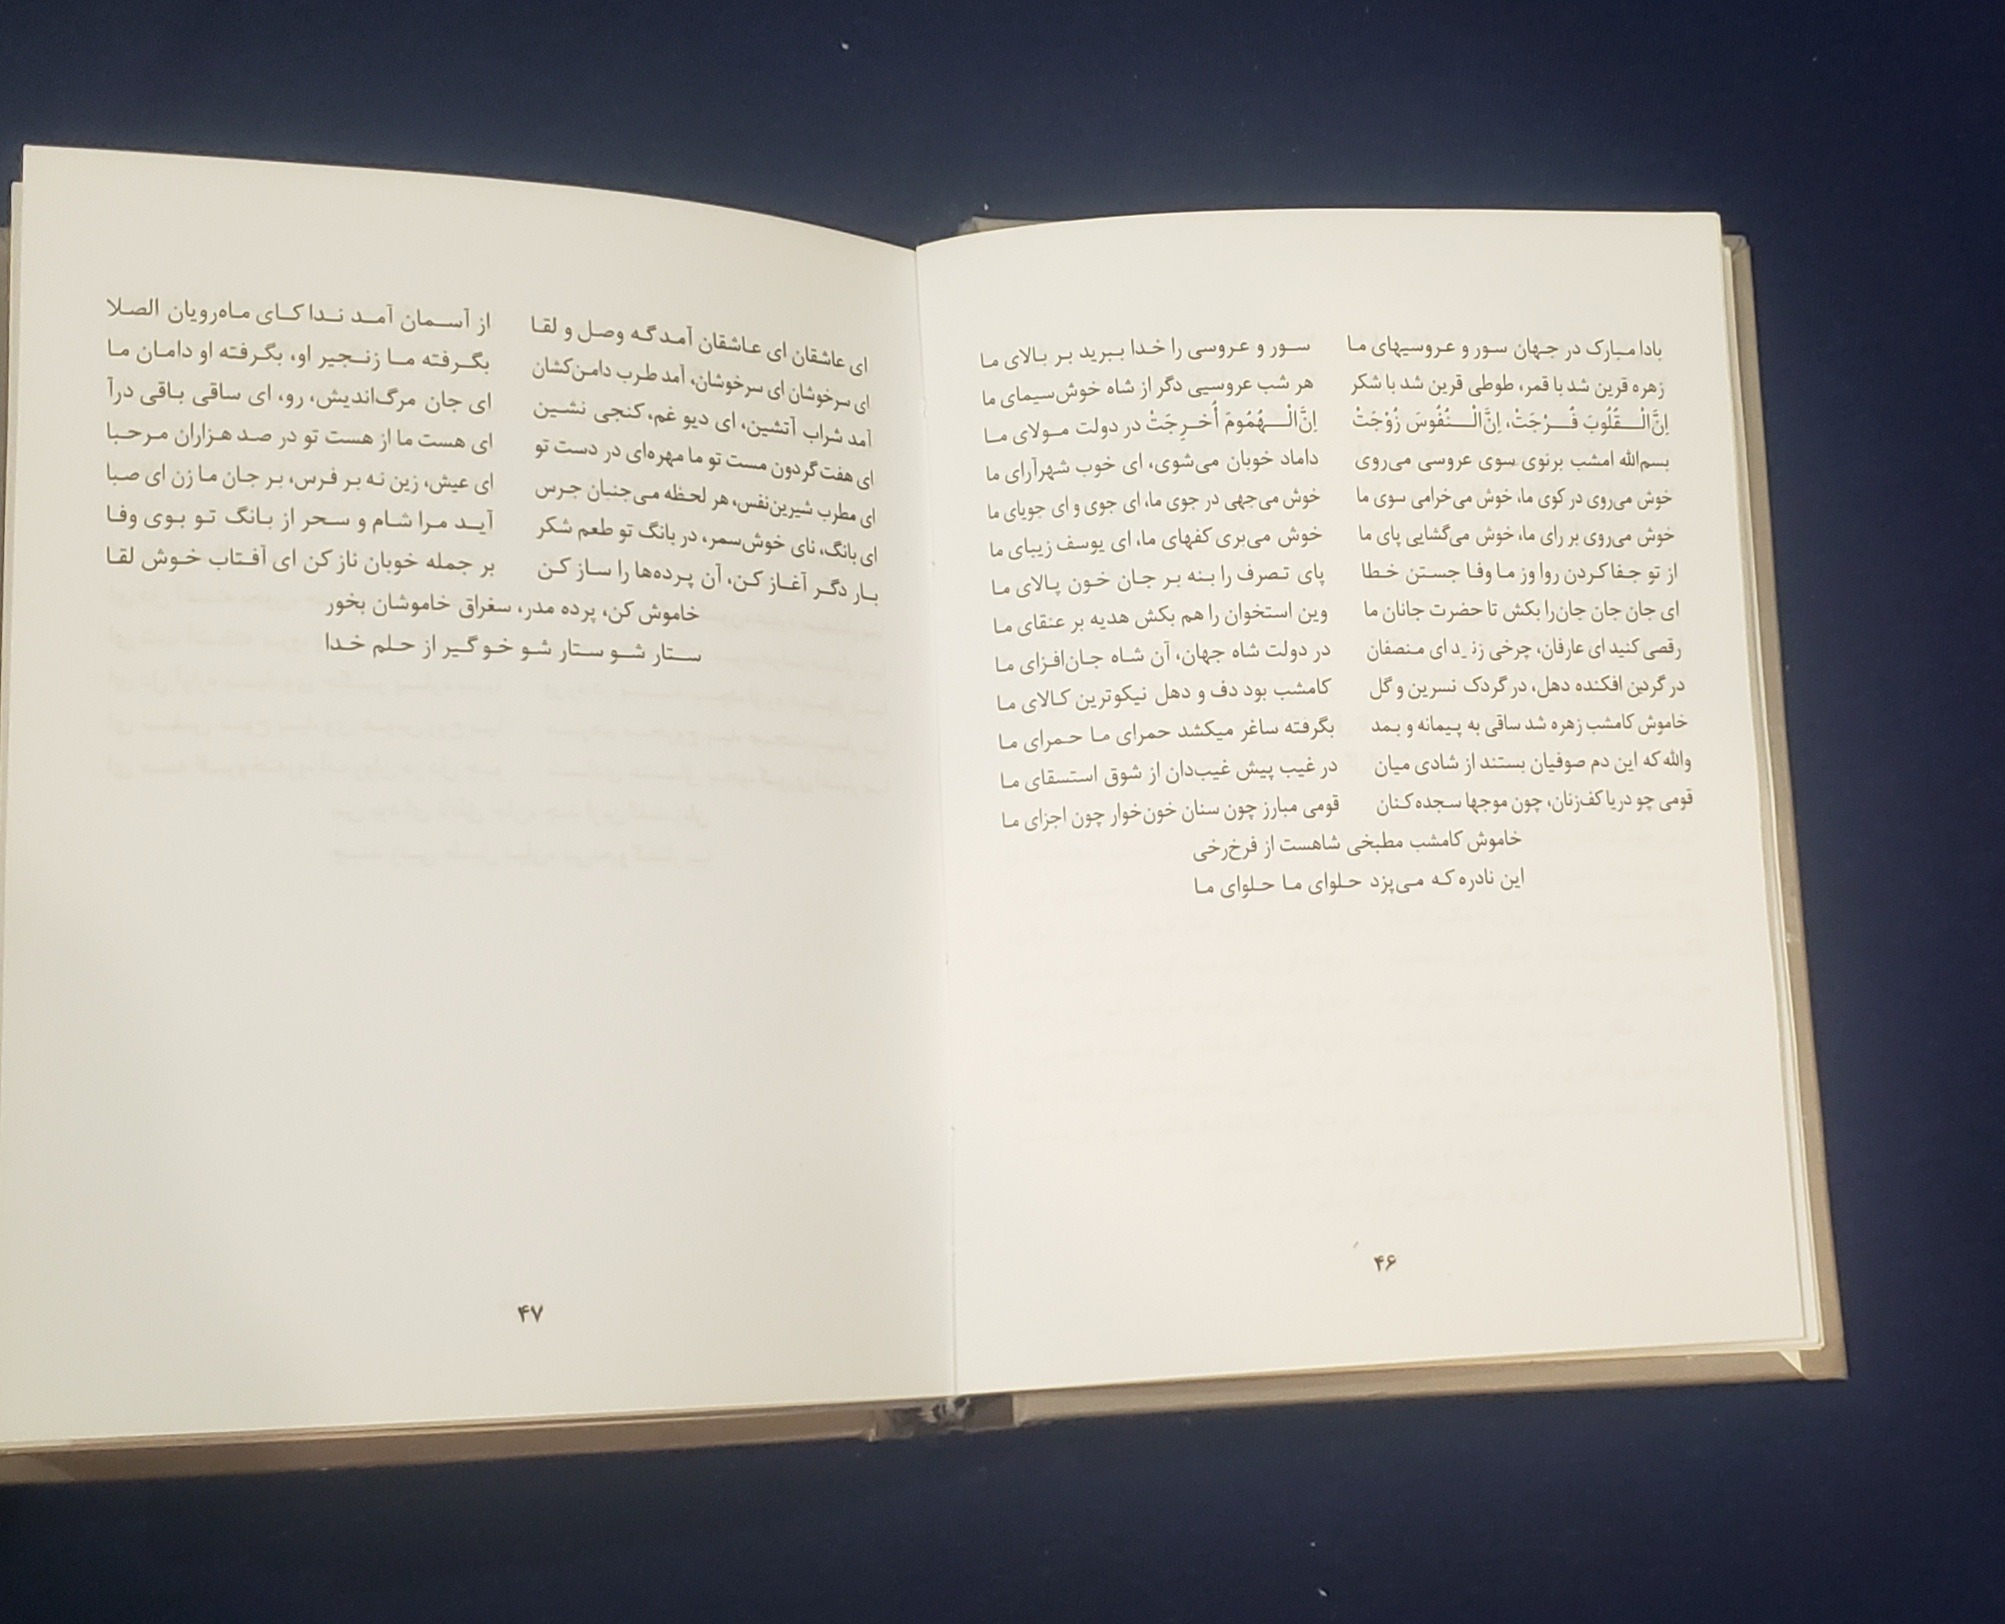 بادا مبارک در جهان سور و عروسیهای ما سور و عروسی را خدا ببرید بر بالای ما
زهره قرین شد با قمر، طوطی قرین شد با شکر هر شب عروسیی دگر از شاه خوش‌سیمای ما
اِنَّ الْقُلُوبَ فُرْجَتْ، اِنَّ الْنُفُوسَ زُوْجَتْ اِنَّ الْهُمُومَ اُخرِجَتْ در دولت مولای ما
بسم‌الله امشب برنوی سوی عروسی می‌روی داماد خوبان می‌شوی، ای خوب شهرآرای ما
خوش می‌روی در کوی ما، خوش می‌خرامی سوی ما خوش می‌جهی در جوی ما، ای جوی و ای جویای ما
خوش می‌روی بر رای ما، خوش می‌گشایی پای ما خوش می‌بری کفهای ما، ای یوسف زیبای ما
از تو جفا کردن روا وز ما وفا جستن خطا پای تصرف را بنه بر جان خون پالای ما
ای جان جان جان‌را بکش تا حضرت جانان ما وین استخوان را هم بکش هدیه بر عنقای ما
رقصی کنید ای عارفان، چرخی زنید ای منصفان در دولت شاه جهان، آن شاه جان‌افزای ما
در گردن افکنده دهل، در گردک نسرین و گل کامشب بود دف و دهل نیکوترین کالای ما
خاموش کامشب زهره شد ساقی به پیمانه و بمد بگرفته ساغر میکشد حمرای ما حمرای ما
والله که این دم صوفیان بستند از شادی میان در غیب پیش غیب‌دان از شوق استسقای ما
قومی چو دریا کف‌زنان، چون موجها سجده‌کنان قومی مبارز چون سنان خون‌خوار چون اجزای ما
خاموش کامشب مطبخی شاهست از فرخ‌رخی
این نادره که می‌پزد حلوای ما حلوای ما
۴۶
ای عاشقان ای عاشقان آمد گه وصل و لقا از آسمان آمد ندا کای ماه‌رویان الصلا
ای سرخوشان ای سرخوشان، آمد طرب دامن‌کشان بگرفته ما زنجیر او، بگرفته او دامان ما
آمد شراب آتشین، ای دیو غم، کنجی نشین ای جان مرگ‌اندیش، رو، ای ساقی باقی درآ
ای هفت گردون مست تو ما مهره‌ای در دست تو ای هست ما از هست تو در صد هزاران مرحبا
ای مطرب شیرین‌نفس، هر لحظه می‌جنبان جرس ای عیش، زین نه بر فرس، بر جان ما زن ای صبا
ای بانگ، نای خوش‌سمر، در بانگ تو طعم شکر آید مرا شام و سحر از بانگ تو بوی وفا
بار دگر آغاز کن، آن پرده‌ها را ساز کن بر جمله خوبان ناز کن ای آفتاب خوش لقا
خاموش کن، پرده مدر، سغراق خاموشان بخور
ستار شو ستار شو خو گیر از حلم خدا
۴۷